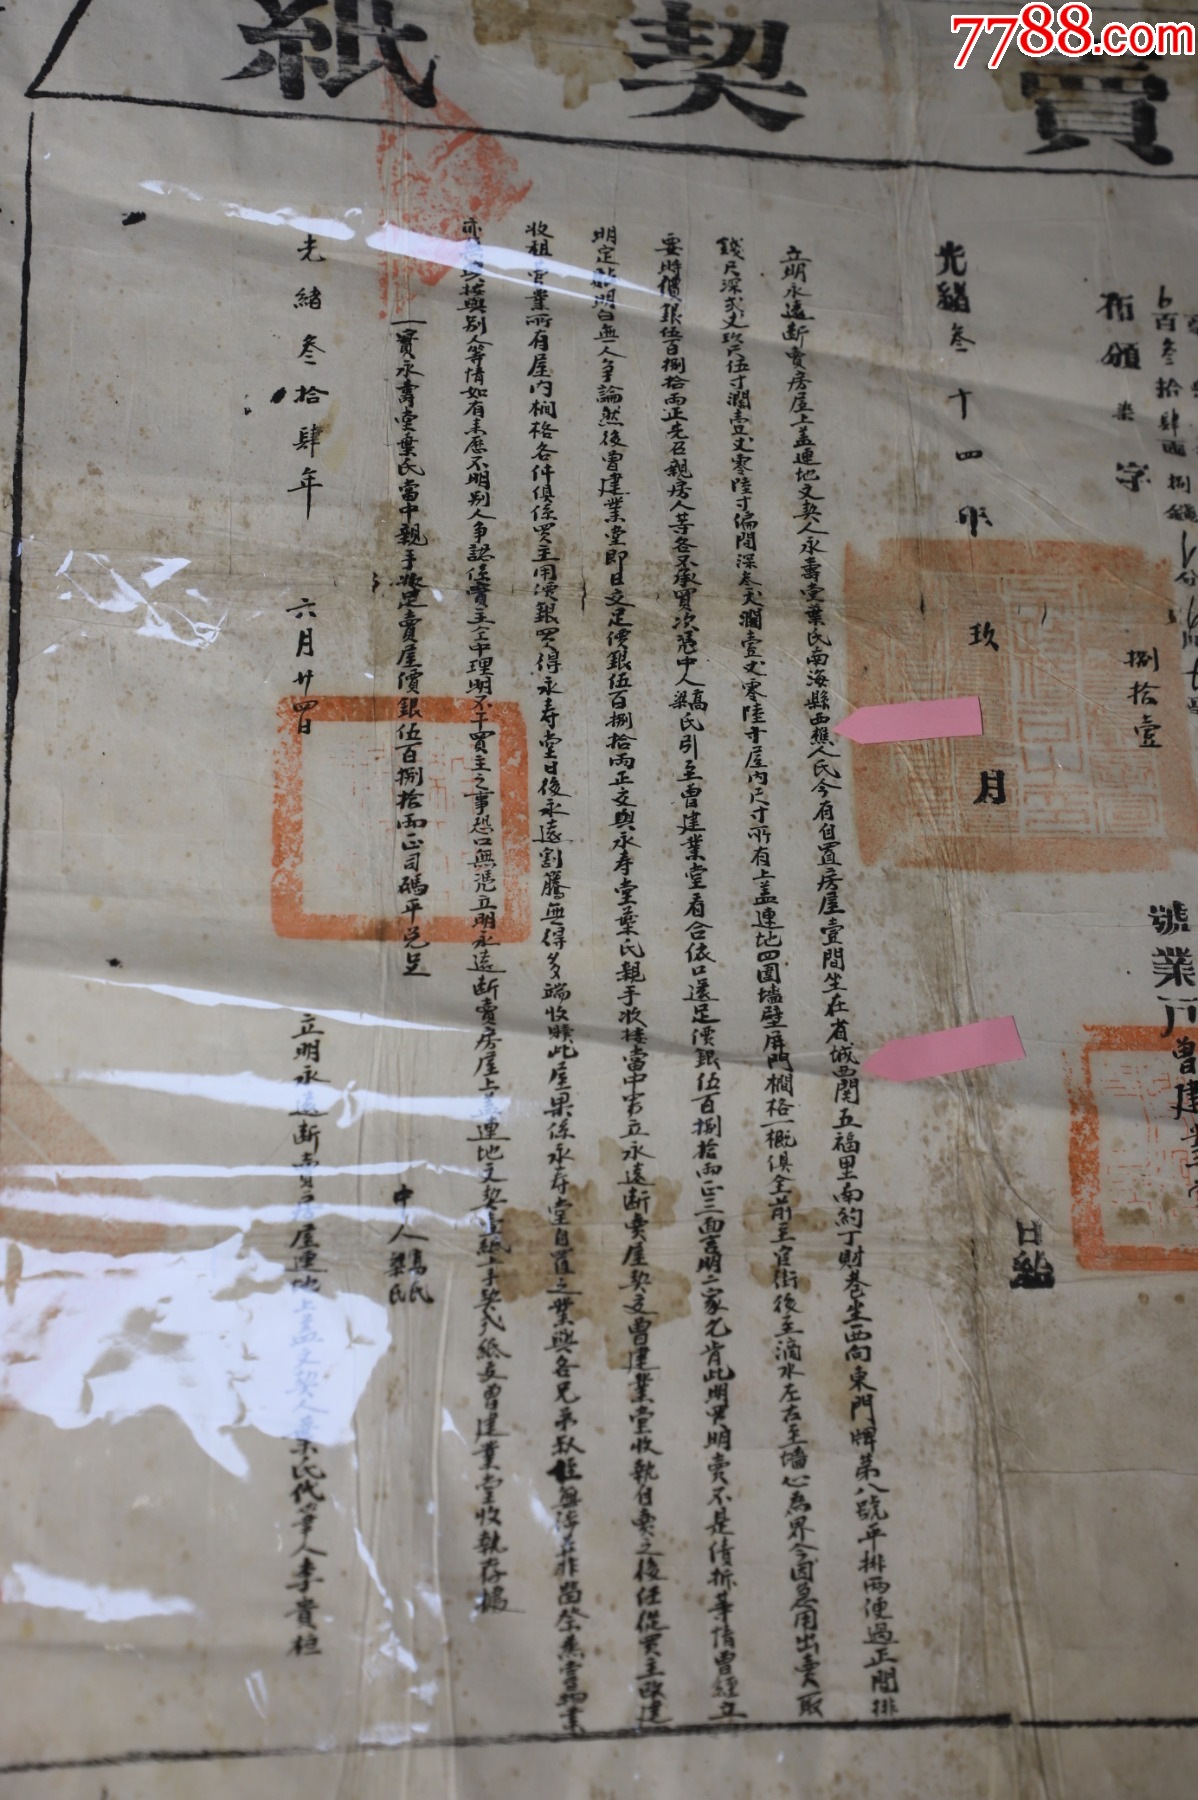 7788.com
賣契紙
布頒 字 捌拾壹
號業戶曾建業堂
光緒叁十四年 玖 月 日給
立明永遠断賣房屋上盖連地文契人永壽堂葉氏南海縣西樵人氏今有自置房屋壹間坐在省城西關五福里南約丁財巷坐西向東門牌第八號平排兩便過正間排
錢尺深弍丈玖尺伍寸濶壹丈零陸寸偏間深叁丈濶壹丈零陸寸屋内尺寸所有上盖連地四圍墻壁屏門櫊格一概俱全前至官街後至滴水左右至墻心為界今因急用出賣取
要時價銀伍百捌拾兩正先召親房人等各不承買次憑中人高氏梁氏引至曾建業堂看合依口還足價銀伍百捌拾兩正三面言明二家允肯此明買明賣不是債折等情曾經立
明定帖明白無人爭論然後曾建業堂即日交足價銀伍百捌拾兩正交與永寿堂葉氏親手收接當中書立永遠断賣屋契交曾建業堂收執自賣之後任從買主改建
收租管業所有屋内櫊格各件俱係買主用價銀買得永寿堂日後永遠割騰無得多端收贖此屋果係永寿堂自置之業與各兄弟叔侄無涉並非留祭嘗物業
亦無與别人等情如有来歴不明别人爭認係賣主仝中理明不干買主之事恐口無憑立明永遠断賣房屋上盖連地文契壹紙上手契弍紙交曾建業堂收執存據
一實永壽堂葉氏當中親手收足賣屋價銀伍百捌拾兩正司碼平兌足
中人高氏梁氏
光緒叁拾肆年 六月廿四日 立明永遠断賣房屋連地上盖文契人葉氏代筆人李貴桓